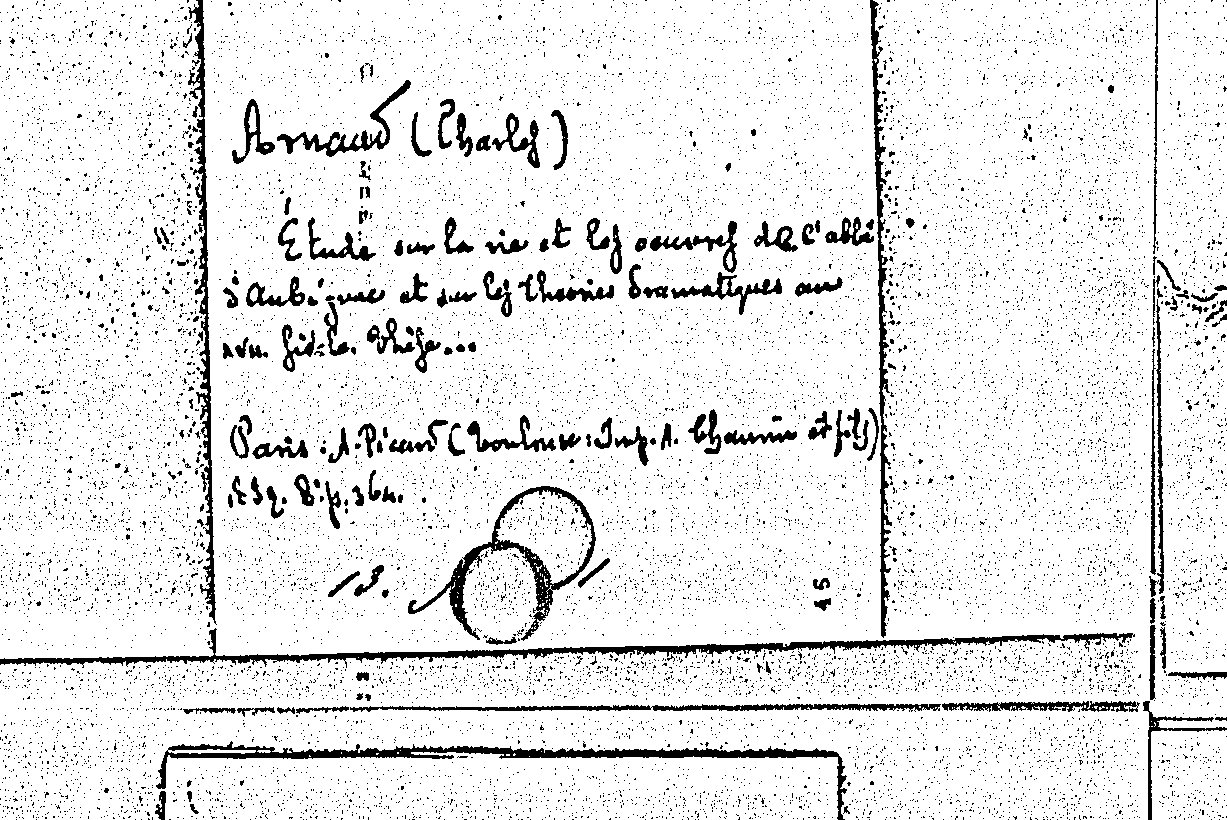 Arnaud (Charles)
Étude sur la vie et les oeuvres de l'abbé
d'Aubignac et sur les théories dramatiques au
XVII. siècle. Thèse...
Paris : A. Picard (Toulouse : Imp. A. Chauvin et fils)
8° p. 364.
45